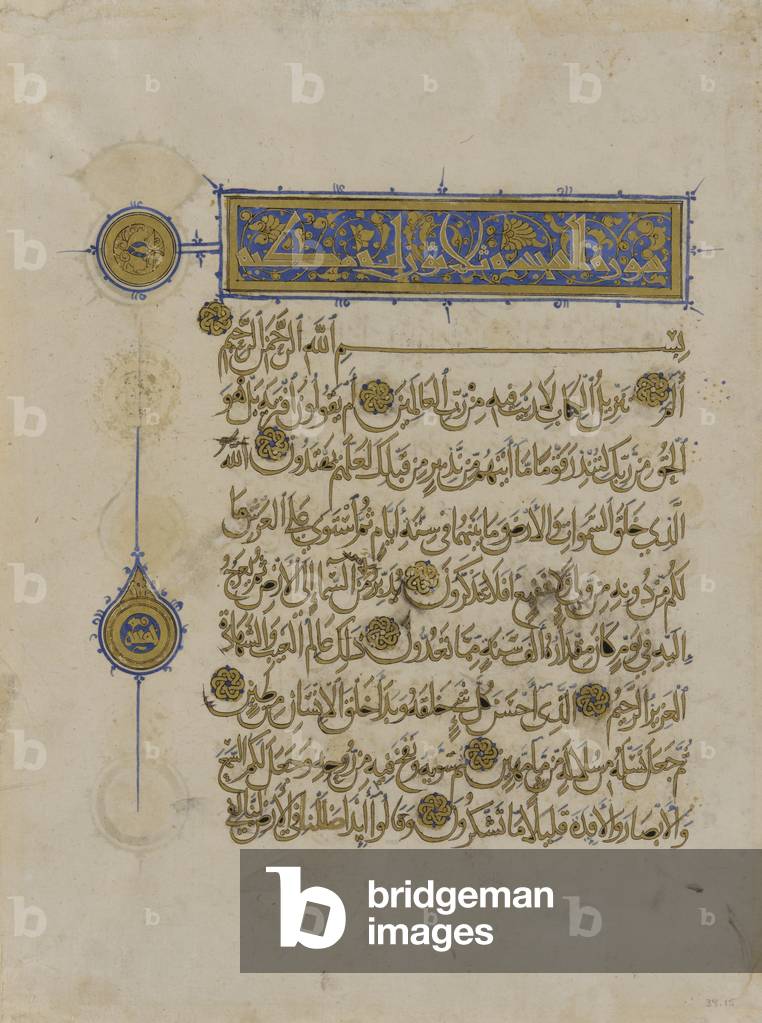 سورة السجدة ثلثون آية مكية
بسم الله الرحمن الرحيم
الم تنزيل الكتاب لا ريب فيه من رب العالمين أم يقولون افتريه بل هو
الحق من ربك لتنذر قوما ما أتيهم من نذير من قبلك لعلهم يهتدون الله
الذي خلق السموات والأرض وما بينهما في ستة أيام ثم استوى على العرش ما
لكم من دونه من ولي ولا شفيع أفلا تتذكرون يدبر الأمر من السماء إلى الأرض ثم يعرج
إليه في يوم كان مقداره ألف سنة مما تعدون ذلك عالم الغيب والشهادة
العزيز الرحيم الذي أحسن كل شيء خلقه وبدأ خلق الإنسان من طين
ثم جعل نسله من سلالة من ماء مهين ثم سويه ونفخ فيه من روحه وجعل لكم السمع
والأبصار والأفئدة قليلا ما تشكرون وقالوا أئذا ضللنا في الأرض
bridgeman
images